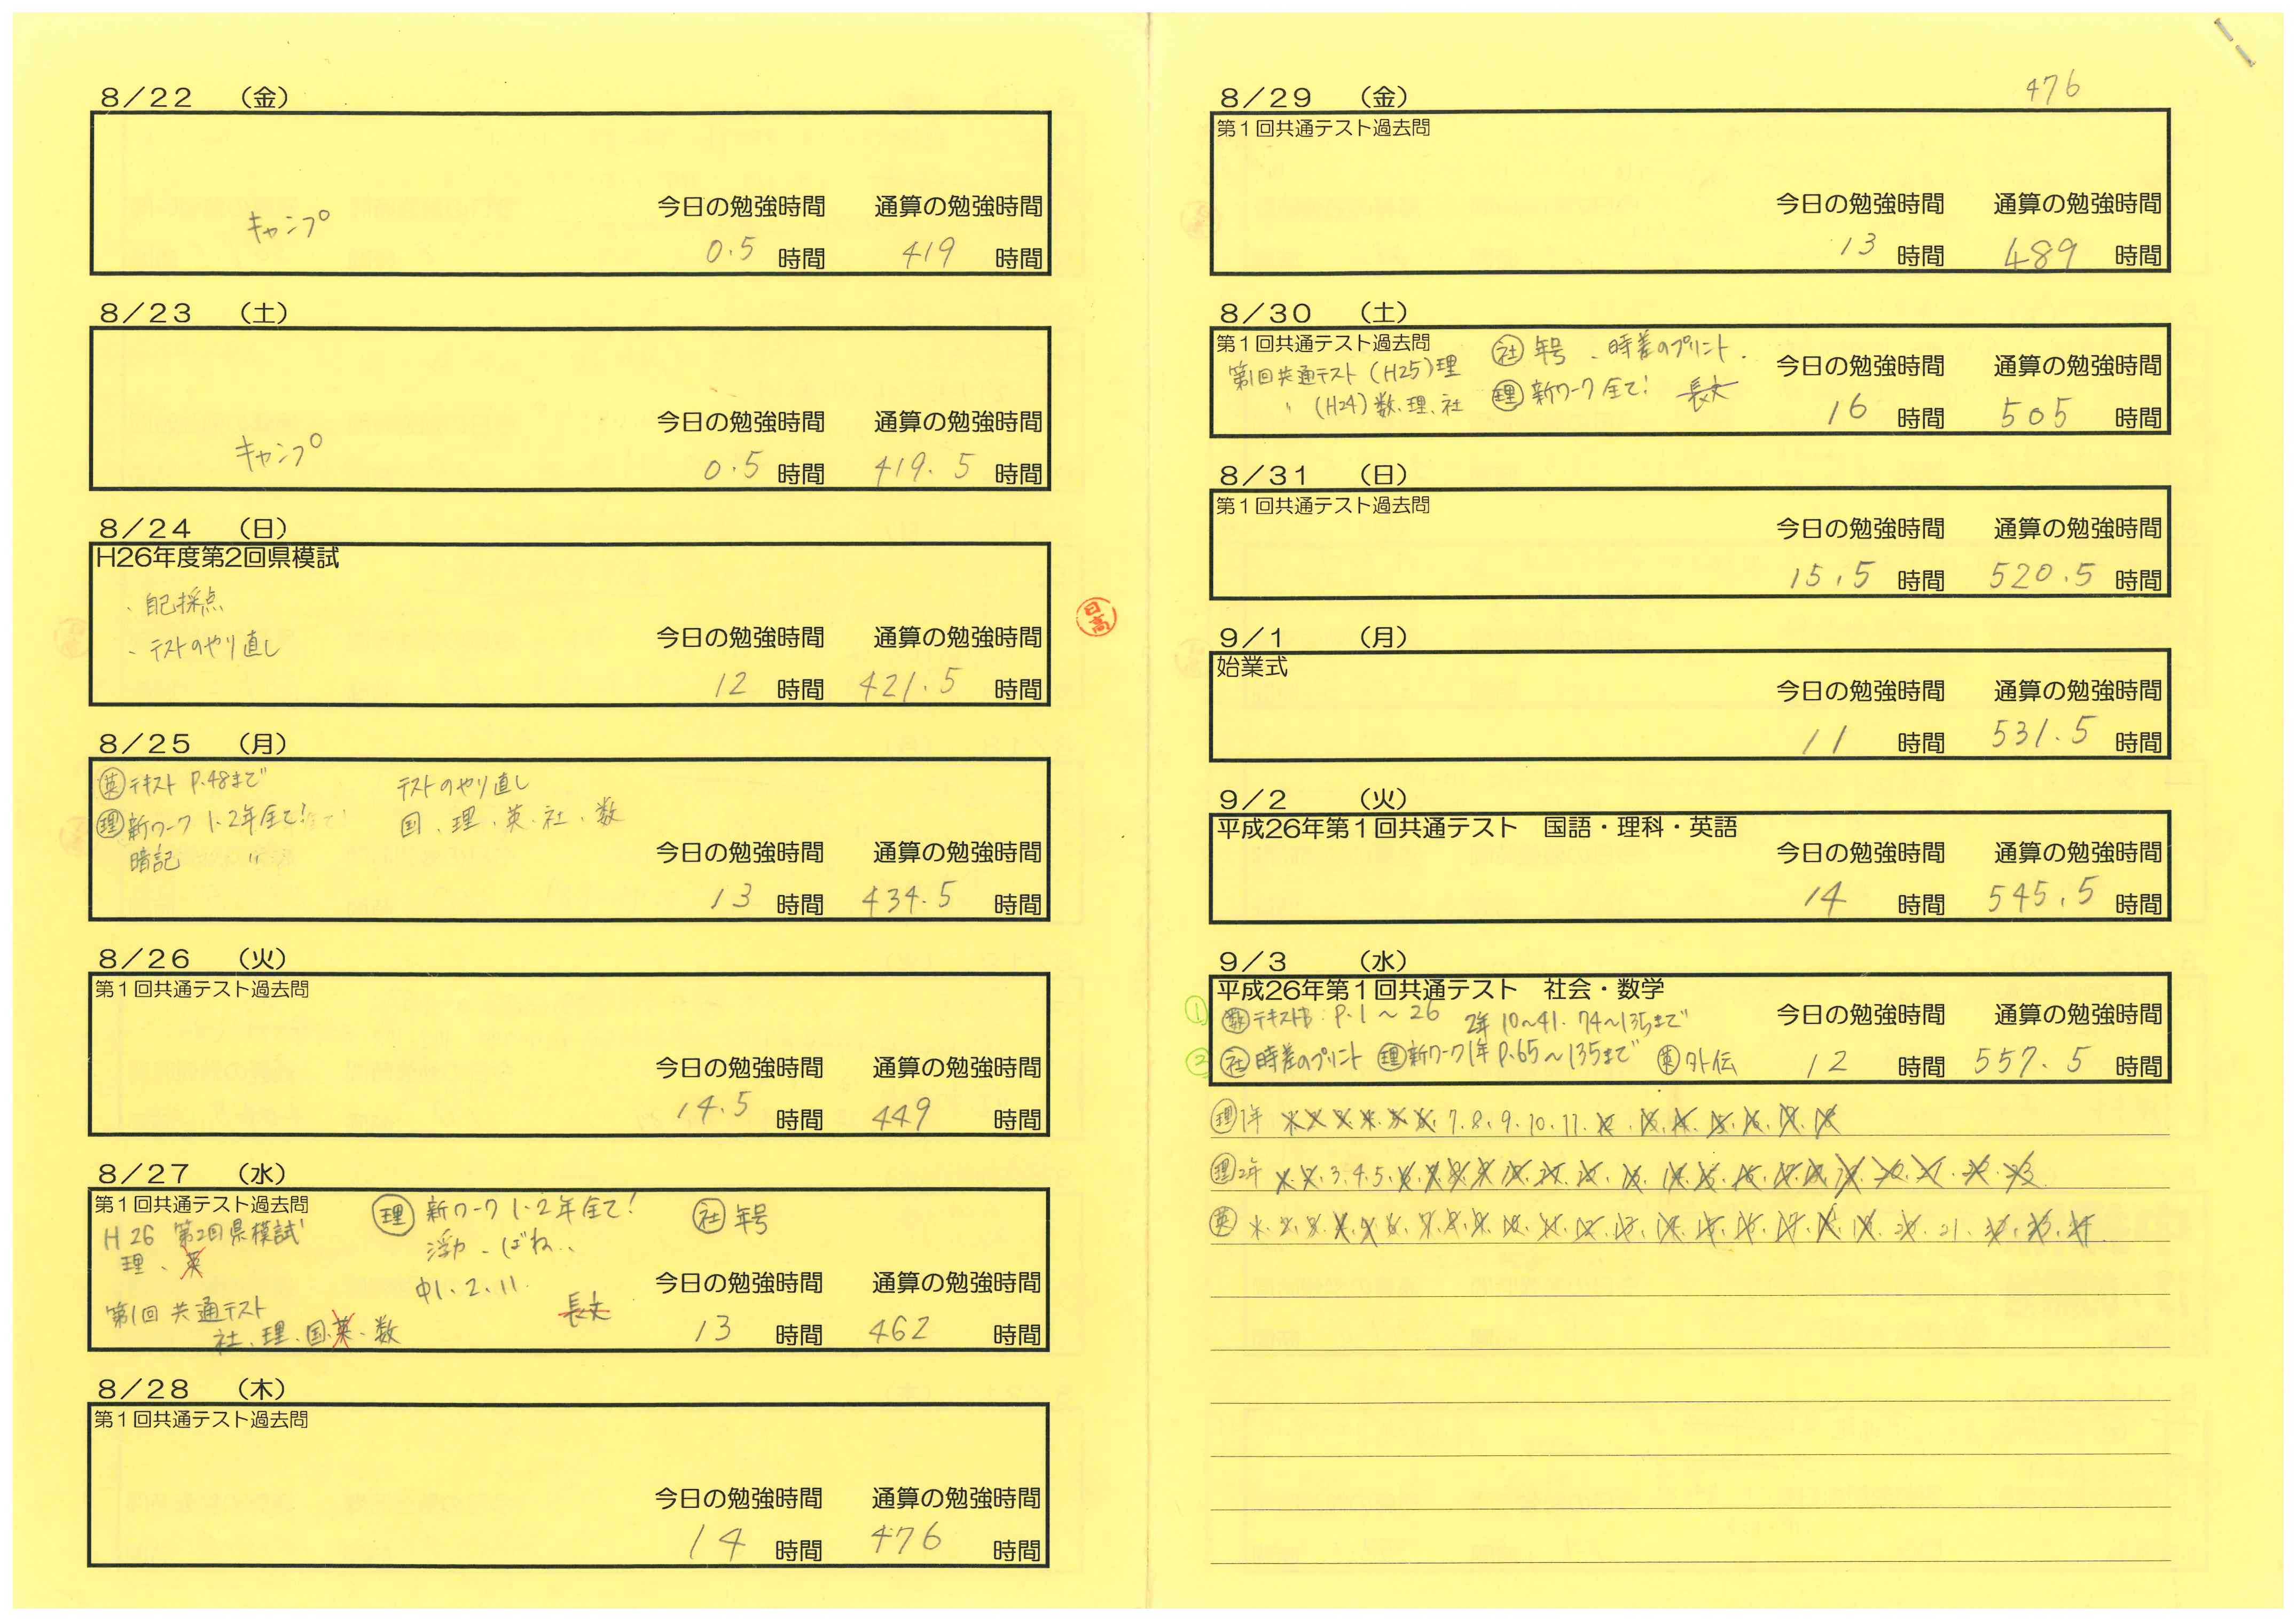 8／22　（金）
キャンプ
今日の勉強時間　通算の勉強時間
0.5 時間　419 時間
8／23　（土）
キャンプ
今日の勉強時間　通算の勉強時間
0.5 時間　419.5 時間
8／24　（日）
H26年度第2回県模試
・自己採点
・テストのやり直し
今日の勉強時間　通算の勉強時間
12 時間　421.5 時間
日高
8／25　（月）
英 テキスト P.48まで　テストのやり直し
理 新ワーク 1・2年全て!　国、理、英、社、数
暗記　〃
今日の勉強時間　通算の勉強時間
13 時間　434.5 時間
8／26　（火）
第1回共通テスト過去問
今日の勉強時間　通算の勉強時間
14.5 時間　449 時間
8／27　（水）
第1回共通テスト過去問
H26 第2回県模試
理、英
第1回 共通テスト
社、理、国、英、数
理 新ワーク 1・2年全て!　社 年号
浮力、ばね、
中1.2.11.
長文
今日の勉強時間　通算の勉強時間
13 時間　462 時間
8／28　（木）
第1回共通テスト過去問
今日の勉強時間　通算の勉強時間
14 時間　476 時間
8／29　（金）　476
第1回共通テスト過去問
今日の勉強時間　通算の勉強時間
13 時間　489 時間
8／30　（土）
第1回共通テスト過去問
第1回共通テスト (H25) 理
〃 (H24) 数、理、社
社 年号、時差のプリント.
理 新ワーク 全て!　長文
今日の勉強時間　通算の勉強時間
16 時間　505 時間
8／31　（日）
第1回共通テスト過去問
今日の勉強時間　通算の勉強時間
15.5 時間　520.5 時間
9／1　（月）
始業式
今日の勉強時間　通算の勉強時間
11 時間　531.5 時間
9／2　（火）
平成26年第1回共通テスト　国語・理科・英語
今日の勉強時間　通算の勉強時間
14 時間　545.5 時間
9／3　（水）
平成26年第1回共通テスト　社会・数学
① 数 テキスト P.1～26　2年 10～41. 74～135まで
② 社 時差のプリント 理 新ワーク1年 P.65～135まで 英 外伝
今日の勉強時間　通算の勉強時間
12 時間　557.5 時間
理 1年 1.2.3.4.5.6.7.8.9.10.11.12.13.14.15.16.17.18
理 2年 1.2.3.4.5.6.7.8.9.10.11.12.13.14.15.16.17.18.19.20.21.22.23
英 1.2.3.4.5.6.7.8.9.10.11.12.13.14.15.16.17.18.19.20.21.22.23.24